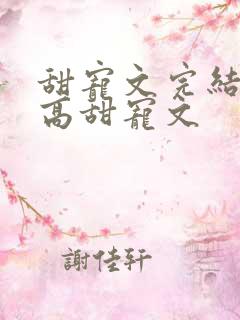 甜寵文完結
高甜寵文
謝佳轩